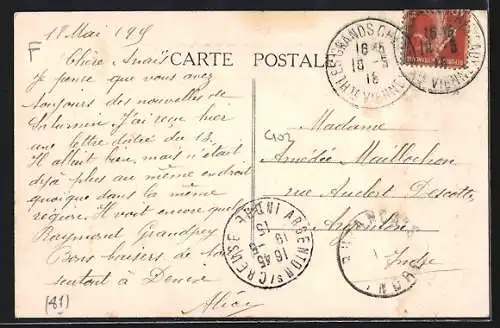 18 Mai 198
F
Chère Anaïs
CARTE POSTALE
Je pense que vous avez
toujours des nouvelles de
Saturnin J'ai reçu hier
une lettre datée du 13.
Il allait bien, mais n'était
déjà plus au même endroit
quoique dans la même
région. Il voit encore
Raymond Grandjey
Bons baisers de
à Denise
Alice
(87)
C102
Madame
Amédée Maillochon
rue Auclert Descottes
Argenton
Indre
GRANDS C
VIENNE
16 45
18 -5
18
ARGENTON S/ CREUSE INDRE
16 45
19 -5
18